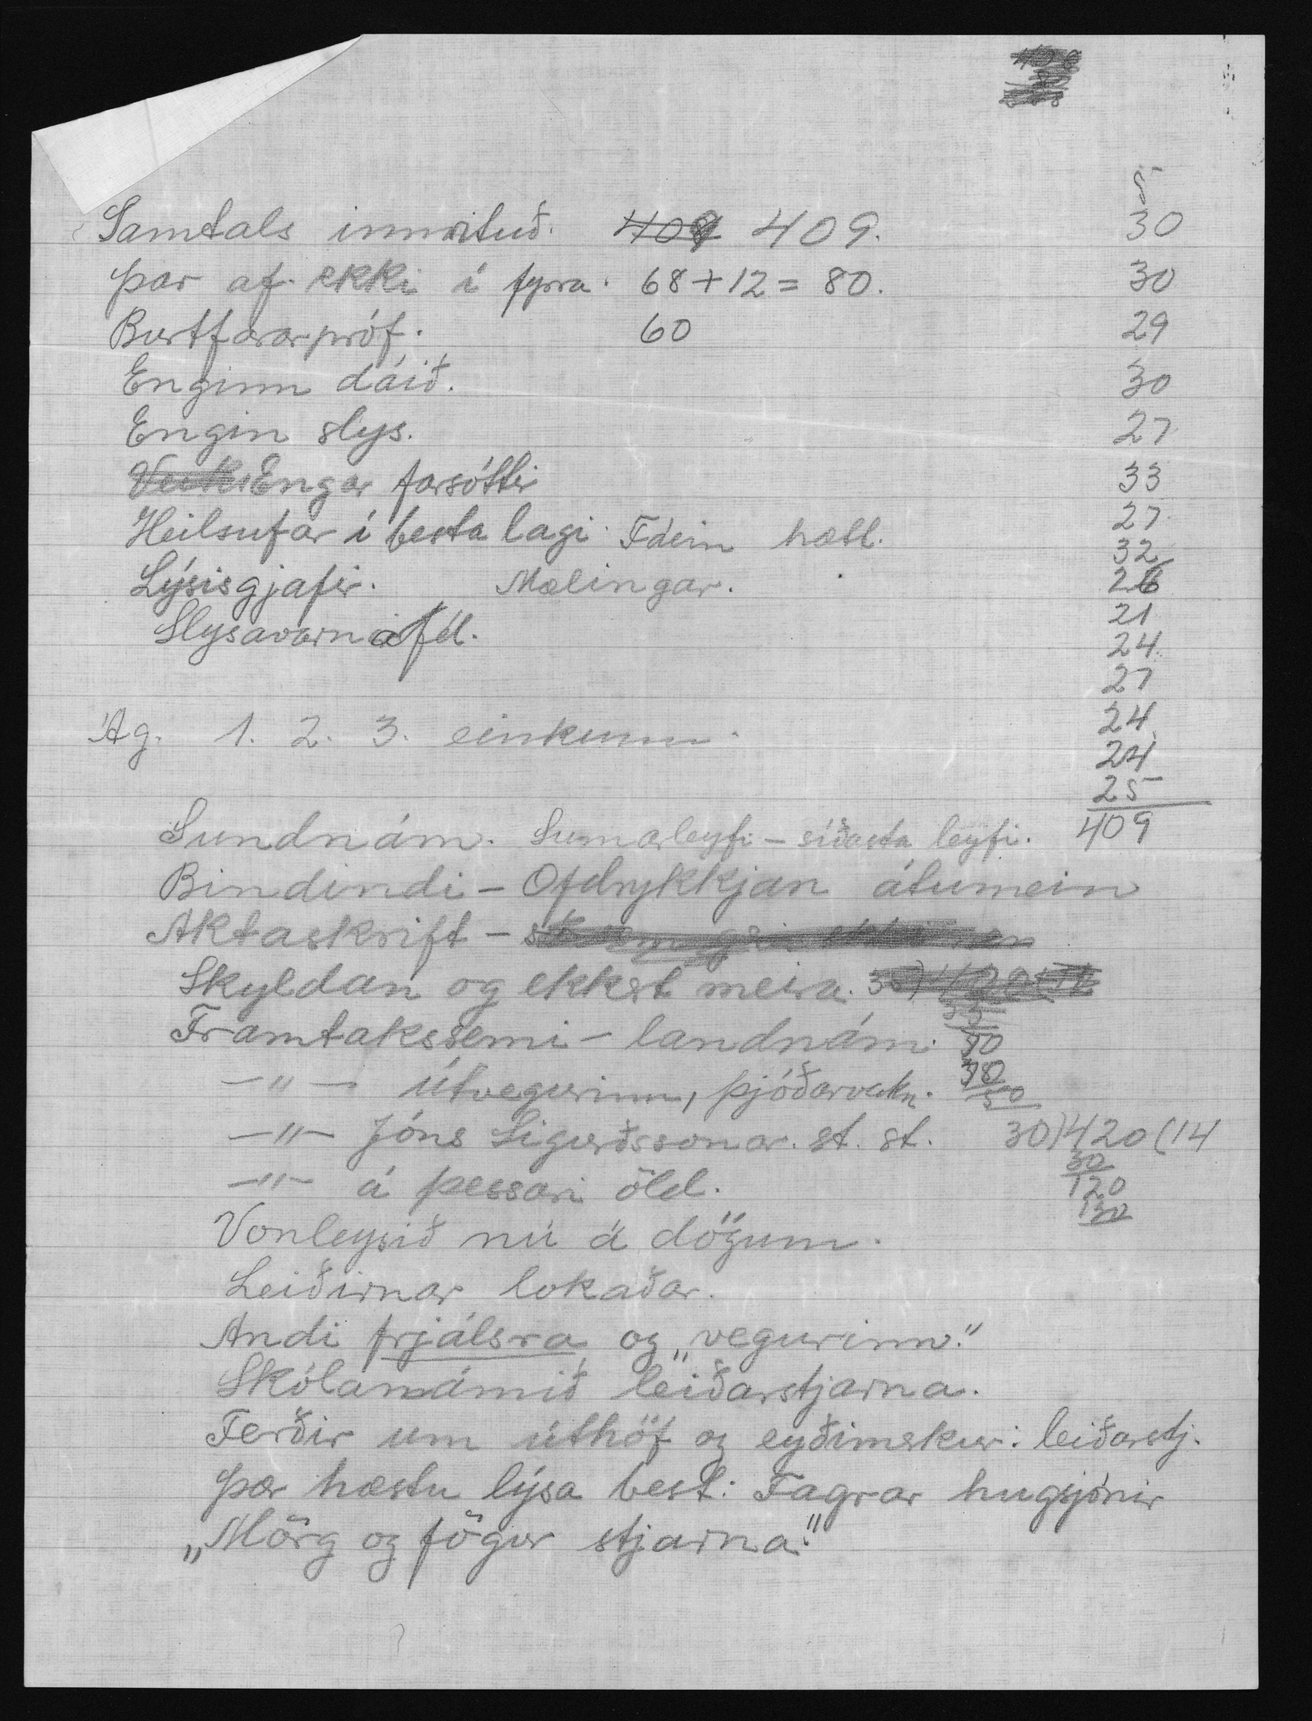 5
Samtals innrituð. 409. 30
Þar af ekki í fyrra. 68 + 12 = 80. 30
Burtfararpróf. 60 29
Enginn dáið. 30
Engin slys. 27
Engar farsóttir 33
Heilsufar í besta lagi. Fáein hætt. 27
Lýsisgjafir. Mælingar. 32
26
Slysavarnafél. 21
24
27
Ág. 1. 2. 3. einkunn. 24
24
25
Sundnám. Sumarleyfi – síðasta leyfi. 409
Bindindi – Ofdrykkjan átumein
Aktaskrift –
Skyldan og ekkert meira.
Framtakssemi – landnám.
–"– útvegurinn, þjóðarvakn.
–"– Jóns Sigurðssonar. st. st. 30)420(14
30
120
120
–"– á þessari öld.
Vonleysið nú á dögum.
Leiðirnar lokaðar.
Andi frjálsra og „vegurinn."
Skólanámið leiðarstjarna.
Ferðir um úthöf og eyðimerkur: leiðarstj.
Þær hæstu lýsa best: Fagrar hugsjónir
„Mörg og fögur stjarna."